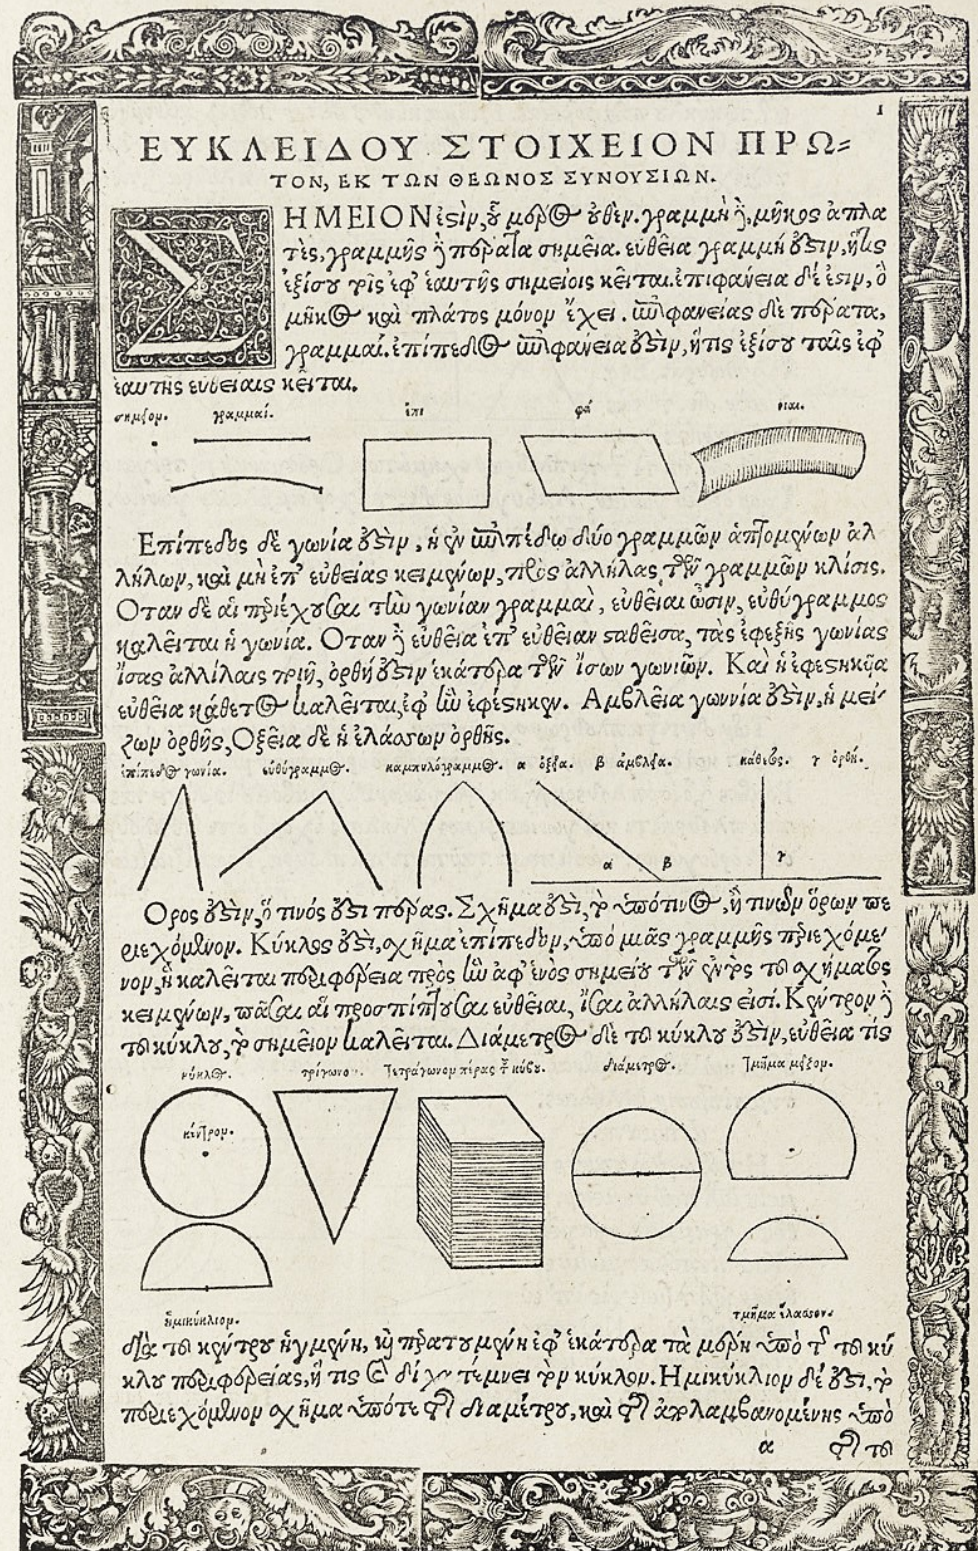 1
ΕΥΚΛΕΙΔΟΥ ΣΤΟΙΧΕΙΟΝ ΠΡΩ=
ΤΟΝ, ΕΚ ΤΩΝ ΘΕΩΝΟΣ ΣΥΝΟΥΣΙΩΝ.
ΣΗΜΕΙΟΝ ἐστὶν, οὗ μέρος οὐθέν. γραμμὴ δὲ, μῆκος ἀπλα
τὲς, γραμμῆς δὲ πέρατα σημεῖα. εὐθεῖα γραμμή ἐστιν, ἥτις
ἐξίσου τοῖς ἐφ' ἑαυτῆς σημείοις κεῖται. ἐπιφάνεια δέ ἐστιν, ὃ
μῆκος καὶ πλάτος μόνον ἔχει. ἐπιφανείας δὲ πέρατα,
γραμμαί. ἐπίπεδος ἐπιφάνεια ἐστὶν, ἥτις ἐξίσου ταῖς ἐφ'
ἑαυτῆς εὐθείαις κεῖται.
σημεῖον. γραμμαί. ἐπι φά νιαι.
Επίπεδος δὲ γωνία ἐστὶν, ἡ ἐν ἐπιπέδῳ δύο γραμμῶν ἁπτομένων ἀλ
λήλων, καὶ μὴ ἐπ' εὐθείας κειμένων, πρὸς ἀλλήλας τῶν γραμμῶν κλίσις.
Οταν δὲ αἱ περιέχουσαι τὴν γωνίαν γραμμαὶ, εὐθεῖαι ὦσιν, εὐθύγραμμος
καλεῖται ἡ γωνία. Οταν δὲ εὐθεῖα ἐπ' εὐθεῖαν σταθεῖσα, τὰς ἐφεξῆς γωνίας
ἴσας ἀλλήλαις ποιῇ, ὀρθή ἐστιν ἑκάτερα τῶν ἴσων γωνιῶν. Καὶ ἡ ἐφεστηκῦα
εὐθεῖα κάθετος καλεῖται, ἐφ' ἣν ἐφέστηκεν. Αμβλεῖα γωννία ἐστὶν, ἡ μεί-
ζων ὀρθῆς, Οξεῖα δὲ ἡ ἐλάσσων ὀρθῆς.
ἐπίπεδος γωνία. εὐθύγραμμος. καμπυλόγραμμος. α ὀξεῖα. β ἀμβλεῖα. κάθετος. γ ὀρθή.
α β γ
Ορος ἐστὶν, ὅ τινός ἐστι πέρας. Σχῆμα ἐστὶ, τὸ ὑπό τινος, ἤ τινων ὅρων πε
ριεχόμενον. Κύκλος ἐστὶ, σχῆμα ἐπίπεδον, ὑπὸ μιᾶς γραμμῆς περιεχόμε-
νον, ἣ καλεῖται περιφέρεια πρὸς ἣν ἀφ' ἑνὸς σημείου τῶν ἐντὸς τοῦ σχήματος
κειμένων, πᾶσαι αἱ προσπίπτουσαι εὐθεῖαι, ἴσαι ἀλλήλαις εἰσί. Κέντρον δὲ
τοῦ κύκλου, τὸ σημεῖον καλεῖται. Διάμετρος δὲ τοῦ κύκλου ἐστὶν, εὐθεῖα τὶς
κύκλος. τρίγωνο. Τετράγωνον πέρας τοῦ κύβου. διάμετρος. Τμῆμα μεῖζον.
κέντρον.
ἡμικύκλιον. τμῆμα ἔλασσον.
διὰ τοῦ κέντρου ἠγμένη, καὶ περατουμένη ἐφ' ἑκάτερα τὰ μέρη ὑπὸ τῆς τοῦ κύ
κλου περιφερείας, ἥ τις καὶ δίχα τέμνει τὸν κύκλον. Ημικύκλιον δέ ἐστι, τὸ
περιεχόμενον σχῆμα ὑπό τε τῆς διαμέτρου, καὶ τῆς ἀπολαμβανομένης ὑπὸ
α τῆς τοῦ